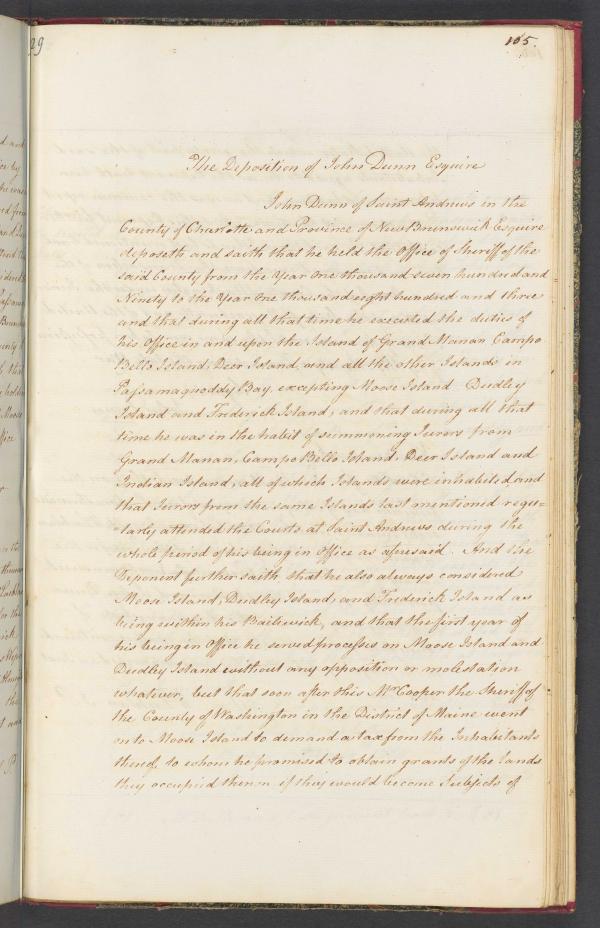 29
105.
The Deposition of John Dunn Esquire
John Dunn of Saint Andrews in the
County of Charlotte and Province of New Brunswick Esquire
deposeth and saith that he held the Office of Sheriff of the
said County from the Year One thousand seven hundred and
Ninety to the Year One thousand eight hundred and three
and that during all that time he executed the duties of
his Office in and upon the Island of Grand Manan Campo
Bello Island, Deer Island, and all the other Islands in
Passamaquoddy Bay, excepting Moose Island Dudley
Island and Frederick Island, and that during all that
time he was in the habit of summoning Jurors from
Grand Manan, Campo Bello Island, Deer Island and
Indian Island, all of which Islands were inhabited and
that Jurors from the same Islands last mentioned regu=
=larly attended the Courts at Saint Andrews during the
whole period of his being in Office as aforesaid. And the
Deponent further saith that he also always considered
Moose Island, Dudley Island, and Frederick Island as
being within his Bailiwick, and that the first year of
his being in Office he served processes on Moose Island and
Dudley Island without any opposition or molestation
whatever, but that soon after this Mr Cooper the Sheriff of
the County of Washington in the District of Maine went
on to Moose Island to demand a tax from the Inhabitants
thereof, to whom he promised to obtain grants of the lands
they occupied thereon if they would become Subjects of